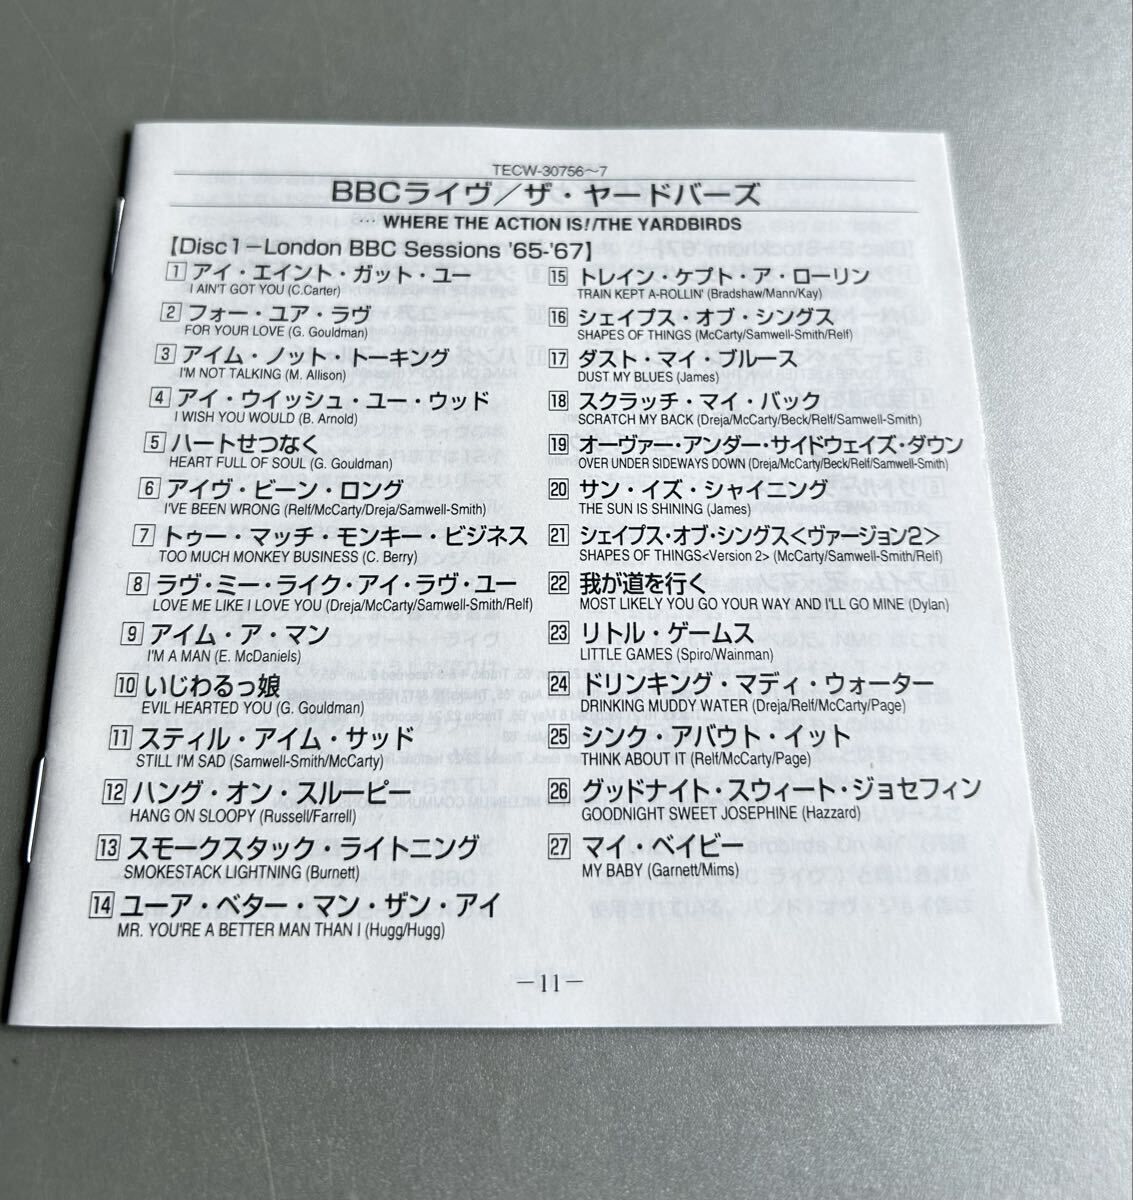 TECW-30756〜7
BBCライヴ／ザ・ヤードバーズ
… WHERE THE ACTION IS!/THE YARDBIRDS
【Disc1－London BBC Sessions '65-'67】
1 アイ・エイント・ガット・ユー
I AIN'T GOT YOU (C.Carter)
2 フォー・ユア・ラヴ
FOR YOUR LOVE (G. Gouldman)
3 アイム・ノット・トーキング
I'M NOT TALKING (M. Allison)
4 アイ・ウイッシュ・ユー・ウッド
I WISH YOU WOULD (B. Arnold)
5 ハートせつなく
HEART FULL OF SOUL (G. Gouldman)
6 アイヴ・ビーン・ロング
I'VE BEEN WRONG (Relf/McCarty/Dreja/Samwell-Smith)
7 トゥー・マッチ・モンキー・ビジネス
TOO MUCH MONKEY BUSINESS (C. Berry)
8 ラヴ・ミー・ライク・アイ・ラヴ・ユー
LOVE ME LIKE I LOVE YOU (Dreja/McCarty/Samwell-Smith/Relf)
9 アイム・ア・マン
I'M A MAN (E. McDaniels)
10 いじわるっ娘
EVIL HEARTED YOU (G. Gouldman)
11 スティル・アイム・サッド
STILL I'M SAD (Samwell-Smith/McCarty)
12 ハング・オン・スルーピー
HANG ON SLOOPY (Russell/Farrell)
13 スモークスタック・ライトニング
SMOKESTACK LIGHTNING (Burnett)
14 ユーア・ベター・マン・ザン・アイ
MR. YOU'RE A BETTER MAN THAN I (Hugg/Hugg)
15 トレイン・ケプト・ア・ローリン
TRAIN KEPT A-ROLLIN' (Bradshaw/Mann/Kay)
16 シェイプス・オブ・シングス
SHAPES OF THINGS (McCarty/Samwell-Smith/Relf)
17 ダスト・マイ・ブルース
DUST MY BLUES (James)
18 スクラッチ・マイ・バック
SCRATCH MY BACK (Dreja/McCarty/Beck/Relf/Samwell-Smith)
19 オーヴァー・アンダー・サイドウェイズ・ダウン
OVER UNDER SIDEWAYS DOWN (Dreja/McCarty/Beck/Relf/Samwell-Smith)
20 サン・イズ・シャイニング
THE SUN IS SHINING (James)
21 シェイプス・オブ・シングス<ヴァージョン2>
SHAPES OF THINGS<Version 2> (McCarty/Samwell-Smith/Relf)
22 我が道を行く
MOST LIKELY YOU GO YOUR WAY AND I'LL GO MINE (Dylan)
23 リトル・ゲームス
LITTLE GAMES (Spiro/Wainman)
24 ドリンキング・マディ・ウォーター
DRINKING MUDDY WATER (Dreja/Relf/McCarty/Page)
25 シンク・アバウト・イット
THINK ABOUT IT (Relf/McCarty/Page)
26 グッドナイト・スウィート・ジョセフィン
GOODNIGHT SWEET JOSEPHINE (Hazzard)
27 マイ・ベイビー
MY BABY (Garnett/Mims)
－11－